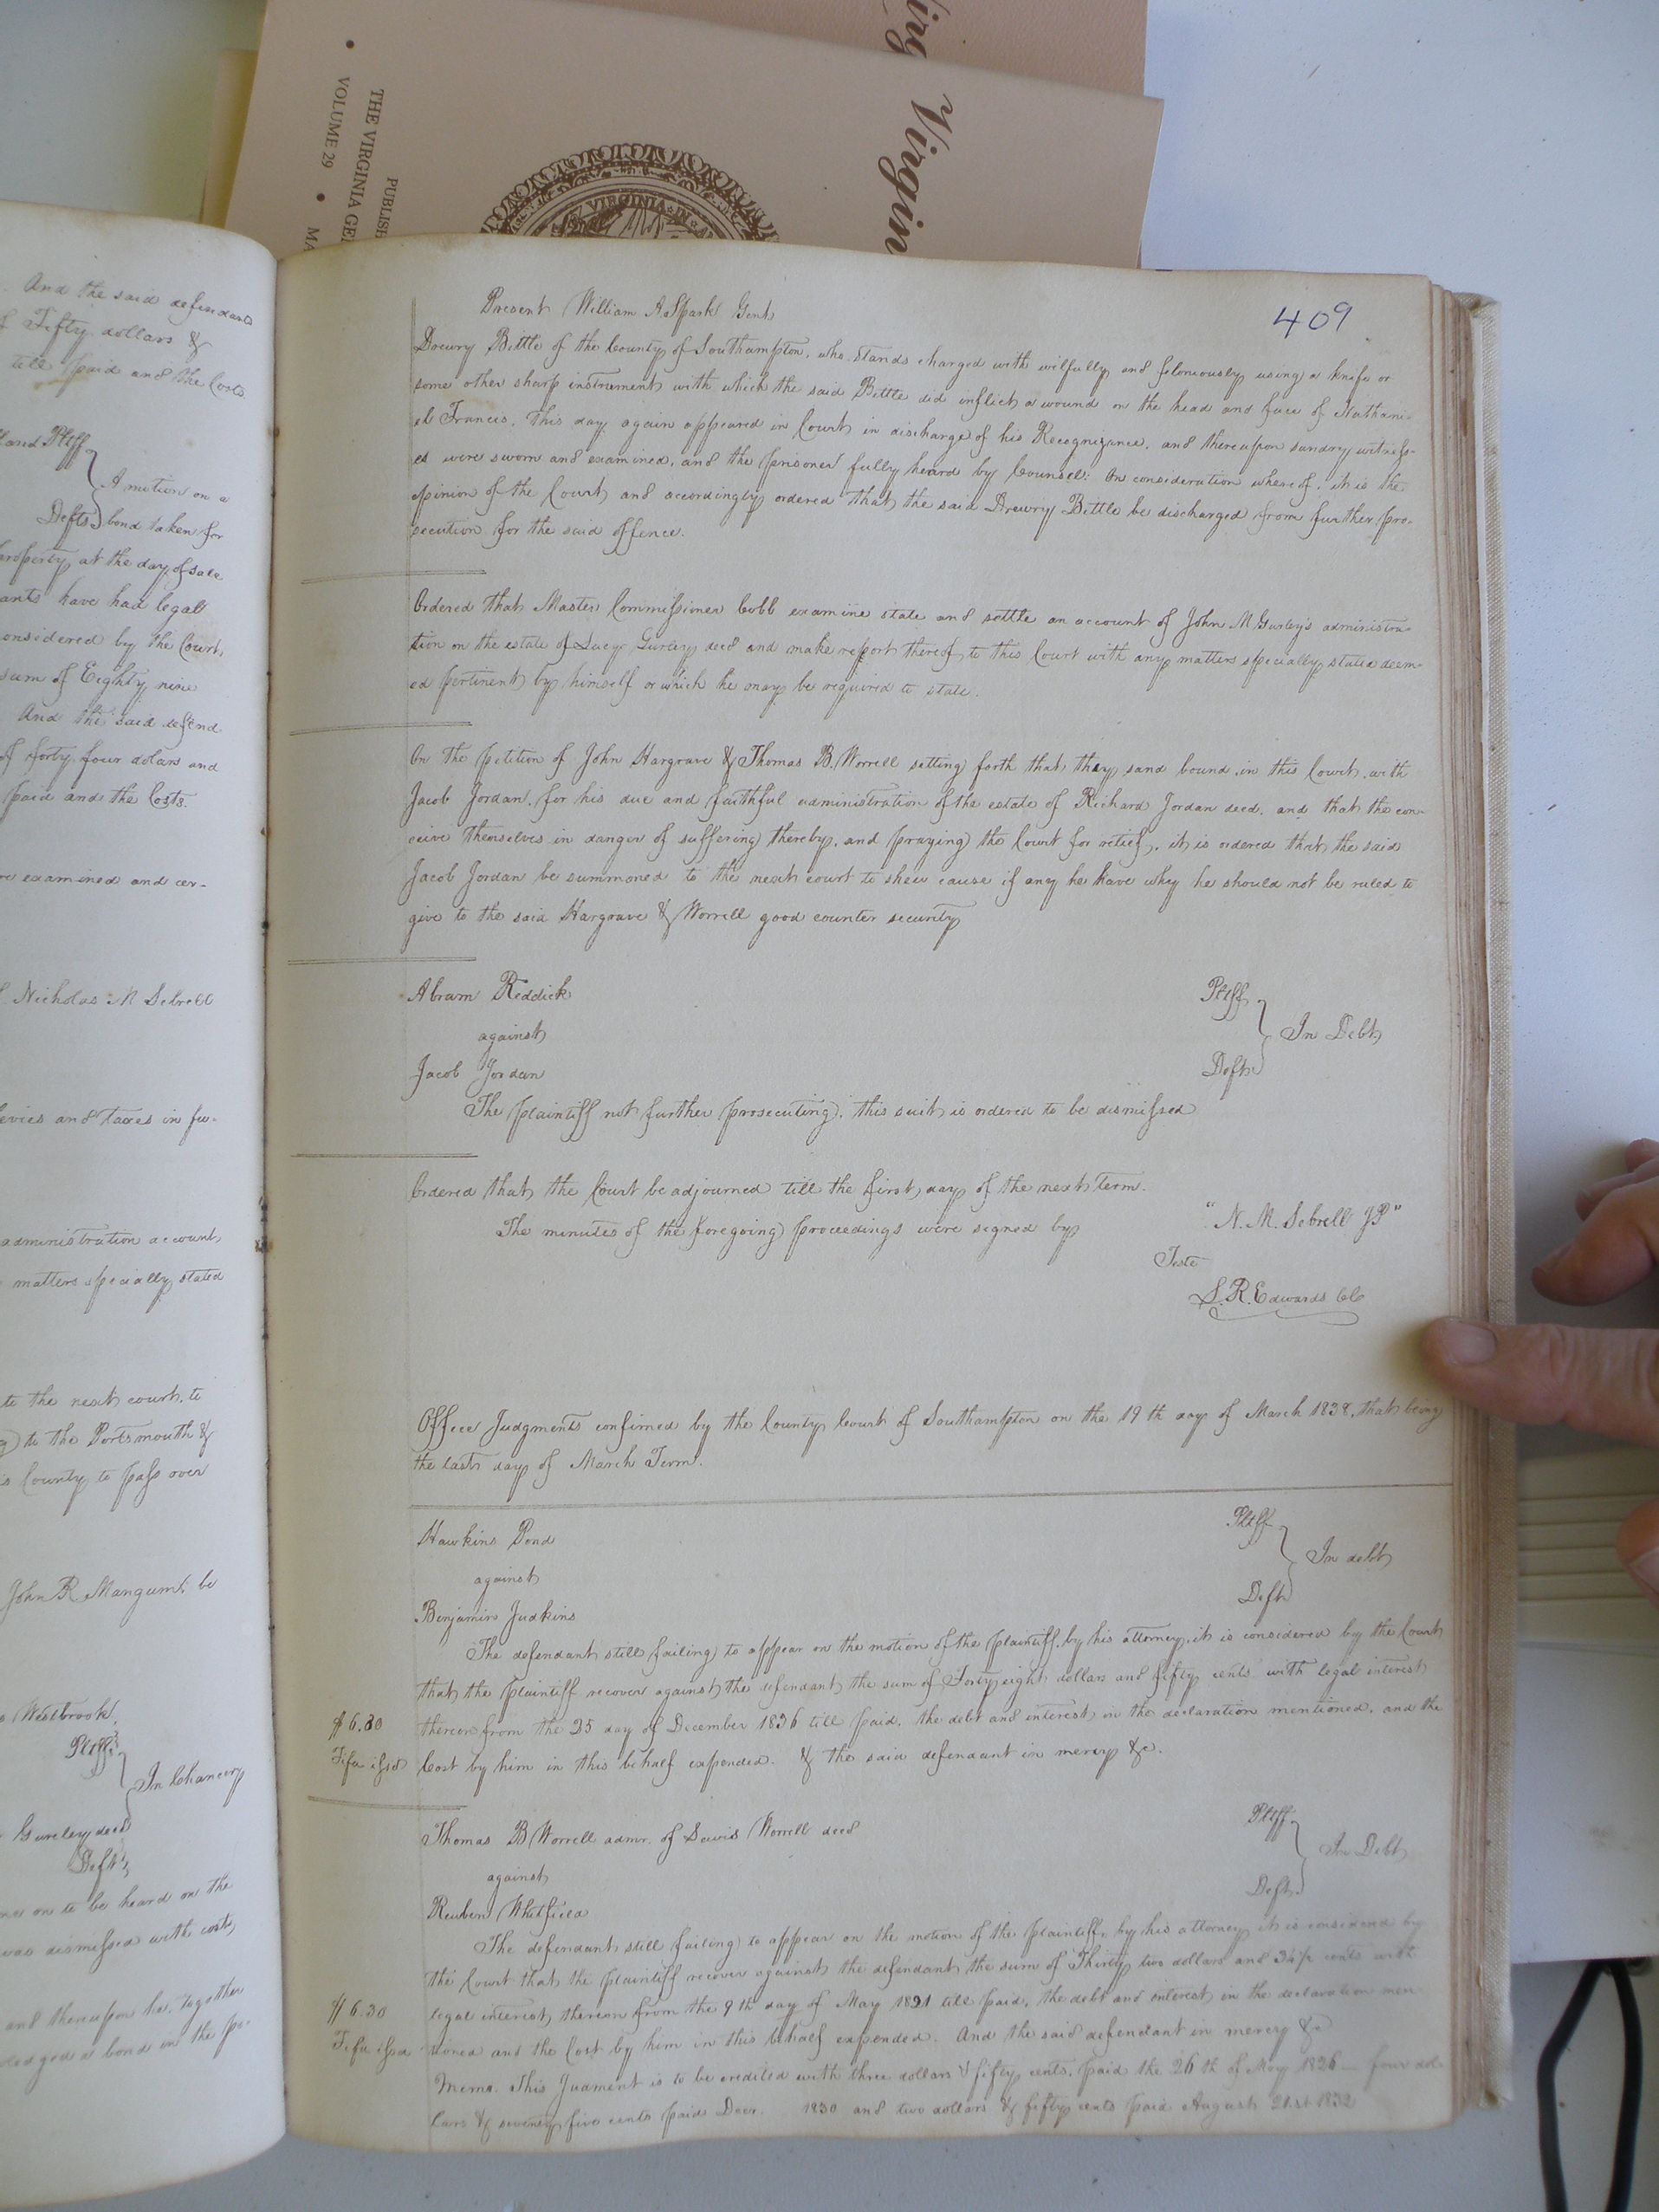 Virgin
PUBLISH
THE VIRGINIA GE
VOLUME 29 • MA
VIRGINIA
And the said defendants
Fifty dollars &
till paid and the Costs
Pltff
A motion on a
Defts bond taken for
property at the day of sale
have had legal
onsidered by the Court,
sum of Eighty nine
And the said defend
of forty four dolars and
paid and the Costs.
examined and cer-
Nicholas M Sebrell
levies and taxes in fu-
administration account
matters specially stated
to the next court, to
to the Portsmouth &
County to pass over
John R Mangum, be
Westbrook
Pltffs
In Chancery
Gurley decd
Defts
on to be heard on the
was dismissed with costs
and thereupon he, together
a bond in the pe-
409
Present William A Spark Gent
Drewry Bittle of the County of Southampton, who stands charged with wilfully and feloniously using a knife or
some other sharp instrument with which the said Bittle did inflict a wound on the head and face of Nathani-
el Francis, This day again appeared in Court in discharge of his Recognizance, and thereupon sundry witness-
es were sworn and examined, and the prisoner fully heard by Counsel: On consideration whereof, it is the
opinion of the Court and accordingly ordered that the said Drewry Bittle be discharged from further pro-
secution for the said offence.
Ordered that Master Commissioner Cobb examine state and settle an account of John M Gurley's administra-
tion on the estate of Lucy Gurley decd and make report thereof to this Court with any matters specially stated deem-
ed pertinent by himself or which he may be required to state.
On the petition of John Hargrave & Thomas B. Worrell setting forth that they sand bound in this Court with
Jacob Jordan, for his due and faithful administration of the estate of Richard Jordan decd. and that the con-
ceive themselves in danger of suffering thereby, and praying the Court for relief, it is ordered that the said
Jacob Jordan be summoned to the next court to shew cause if any he have why he should not be ruled to
give to the said Hargrave & Worrell good counter security
Abram Reddick Pltff
against In Debt
Jacob Jordan Deft
The plaintiff not further prosecuting, this suit is ordered to be dismissed
Ordered that the Court be adjourned till the first day of the next term.
The minutes of the foregoing proceedings were signed by "N. M. Sebrell JP"
Teste
L. R. Edwards CC
Office Judgments confirmed by the County Court of Southampton on the 19th day of March 1838, that being
the last day of March Term.
Hawkins Pond Pltff
against In debt
Benjamin Judkins Deft
The defendant still failing to appear on the motion of the plaintiff, by his attorney, it is considered by the Court
that the plaintiff recover against the defendant the sum of Forty eight dollars and fifty cents with legal interest
$6.30 thereon from the 25 day of December 1836 till paid, the debt and interest in the declaration mentioned, and the
Fifa issd Cost by him in this behalf expended. & the said defendant in mercy &c.
Thomas B Worrell admr. of Lewis Worrell decd Pltff
against In Debt
Reuben Whitfield Deft
The defendant still failing to appear on the motion of the plaintiff, by his attorney it is considered by
the Court that the plaintiff recover against the defendant the sum of Thirty two dollars and cents with
$6.30 legal interest thereon from the 9th day of May 1821 till paid, the debt and interest in the declaration men
Fifa issd tioned and the Cost by him in this behalf expended. And the said defendant in mercy &c
Memo. This Judment is to be credited with three dollars & fifty cents, paid the 26th of May 1826 — four dol-
lars & seventy five cents paid Decr. 1830 and two dollars & fifty cents paid August 21st 1832